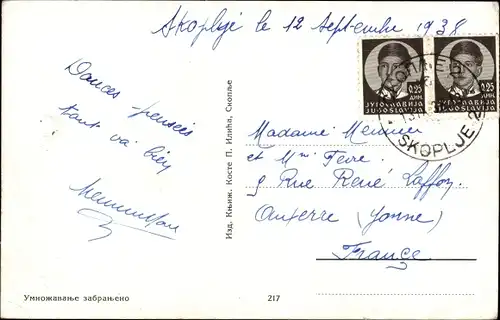 Skoplje le 12 Septembre 1938
0.25 ДИН.
ЈУГОСЛАВИЈА
JUGOSLAVIJA
0.25 ДИН.
ЈУГОСЛАВИЈА
JUGOSLAVIJA
SKOPLJE 2
Douces pensées
tout va bien
Изд. Књиж. Косте П. Илића, Скопље
Madame Meunier
et Mme
9 Rue René Laffon
Auxerre (Yonne)
France
Умножавање забрањено
217